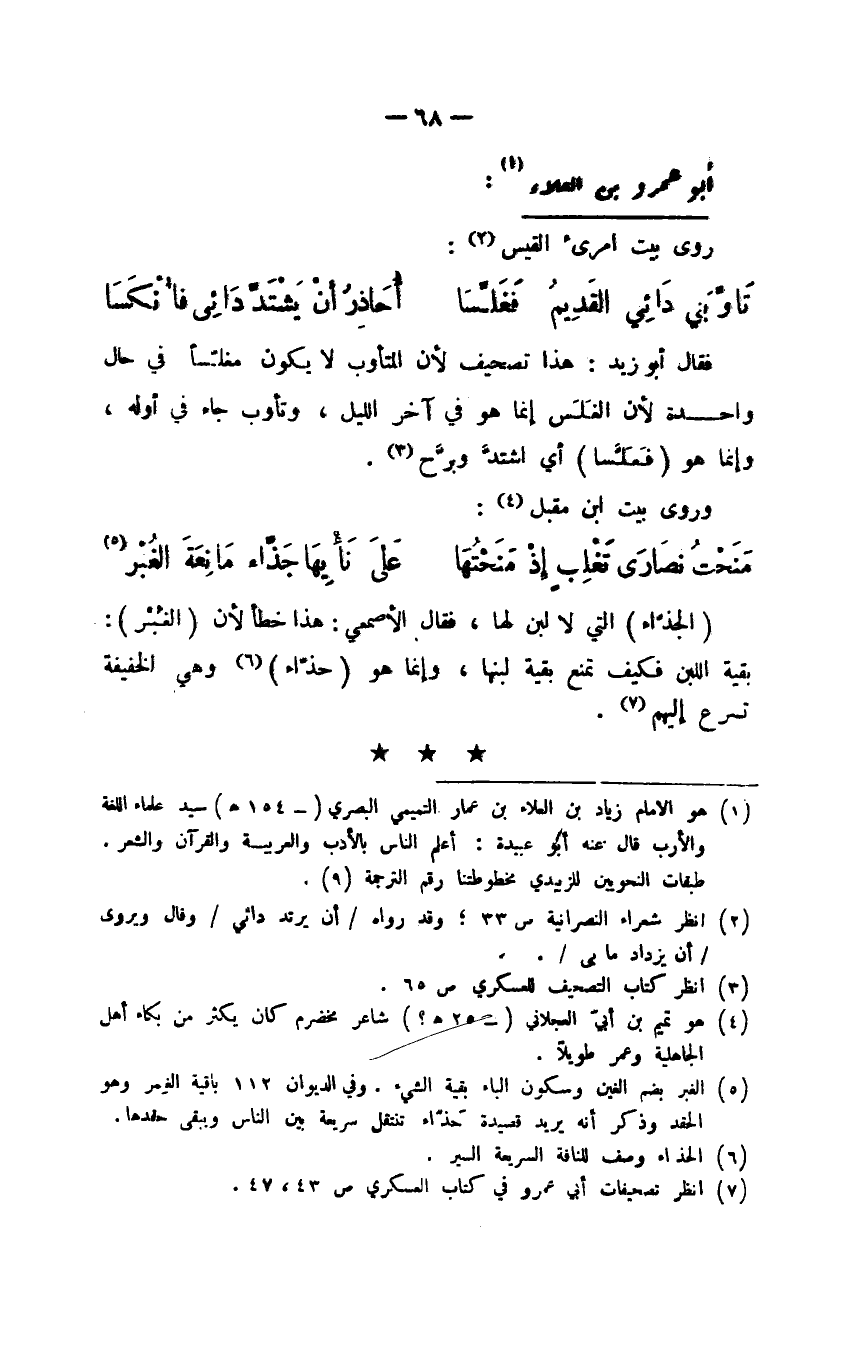 — ٦٨ —
أبو عمرو بن العلاء (١) :
روى بيت امرىء القيس (٢) :
تَأوَّبَني دَائِي القَدِيمُ فَغَلَّسَا أُحَاذِرُ أنْ يَشْتَدَّ دَائِى فأنْكَسَا
فقال أبو زيد : هذا تصحيف لأن المتأوب لا يكون مغلّساً في حال
واحـــدة لأن الغَلَس إنما هو في آخر الليل ، وتأوب جاء في أوله ،
وإنما هو ( فَعَلَّسا ) أي اشتدَّ وبرَّح (٣) .
وروى بيت ابن مقبل (٤) :
مَنَحْتُ نصَارَى تَغْلِبٍ إذْ مَنَحْتُهَا عَلَى نَأْيِهَا جَذَّاء مَانِعَةَ الغُبْرِ (٥)
( الجذّاء ) التي لا لبن لها ، فقال الأصمعي : هذا خطأ لأن ( الغُبْر ) :
بقية اللبن فكيف تمنع بقية لبنها ، وإنما هو ( حذّاء ) (٦) وهي الخفيفة
تسرع إليهم (٧) .
★ ★ ★
(١) هو الامام زياد بن العلاء بن عمار التميمي البصري ( ــ ١٥٤ ه ) سيد علماء اللغة
والأرب قال عنه أبو عبيدة : أعلم الناس بالأدب والعربيــة والقرآن والشعر .
طبقات النحويين للزبيدي مخطوطتنا رقم الترجمة (٩) .
(٢) انظر شعراء النصرانية ص ٣٣ ؛ وقد رواه / أن يرتد دائي / وقال ويروى
/ أن يزداد ما بى / .
(٣) انظر كتاب التصحيف للعسكري ص ٦٥ .
(٤) هو تميم بن أبيّ العجلاني ( ــ ٢٥ ه ؟ ) شاعر مخضرم كان يكثر من بكاء أهل
الجاهلية وعمر طويلاً .
(٥) الغبر بضم الغين وسكون الباء بقية الشيء . وفي الديوان ١١٢ باقية الغِمر وهو
الحقد وذكر أنه يريد قصيدة حَذّاء تنتقل سريعة بين الناس ويبقى حقدها .
(٦) الحذاء وصف للناقة السريعة السير .
(٧) انظر تصحيفات أبي عمرو في كتاب العسكري ص ٤٣ ، ٤٧ .